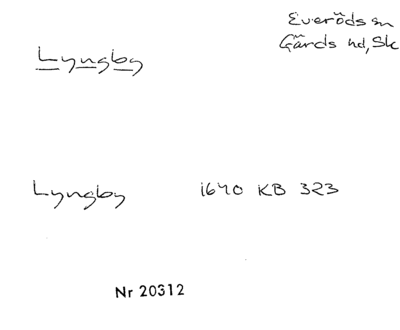 Everöds sn
Gärds hd, Sk
Lyngby
Lyngby 1640 KB 323
Nr 20312